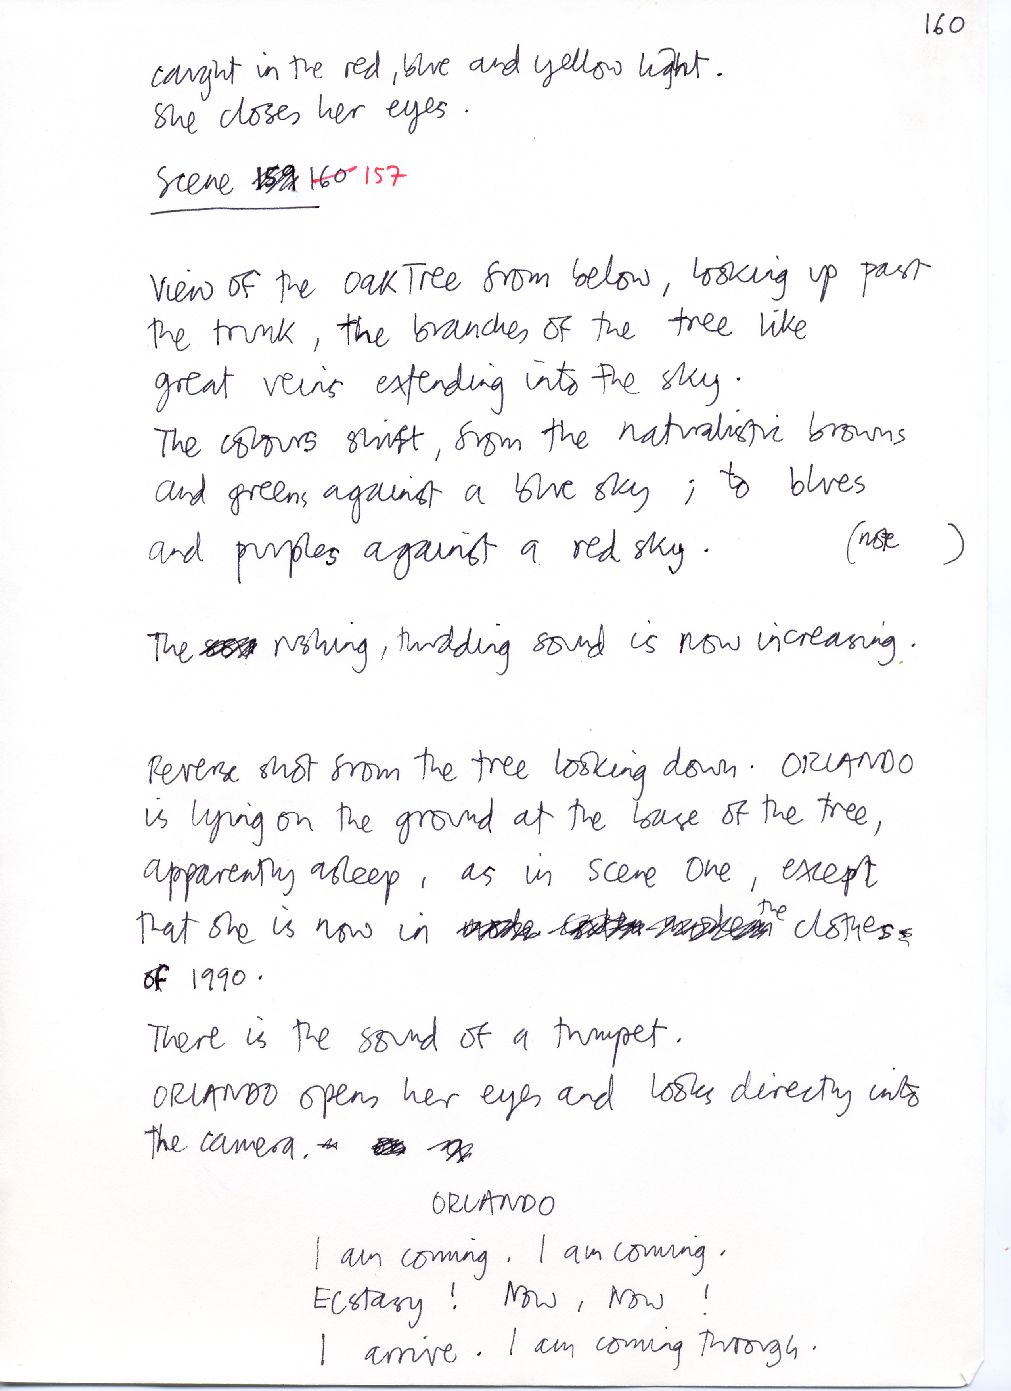 160
caught in the red, blue and yellow light.
She closes her eyes.
Scene 159 160 157
View of the Oak Tree from below, looking up past
the trunk, the branches of the tree like
great veins extending into the sky.
The colours shift, from the naturalistic browns
and greens against a blue sky; to blues
and purples against a red sky. (note )
The rushing, thudding sound is now increasing.
Reverse shot from the tree looking down. ORLANDO
is lying on the ground at the base of the tree,
apparently asleep, as in Scene One, except
that she is now in the clothes
of 1990.
There is the sound of a trumpet.
ORLANDO opens her eyes and looks directly into
the camera.
ORLANDO
I am coming. I am coming.
Ecstasy! Now, Now!
I arrive. I am coming through.